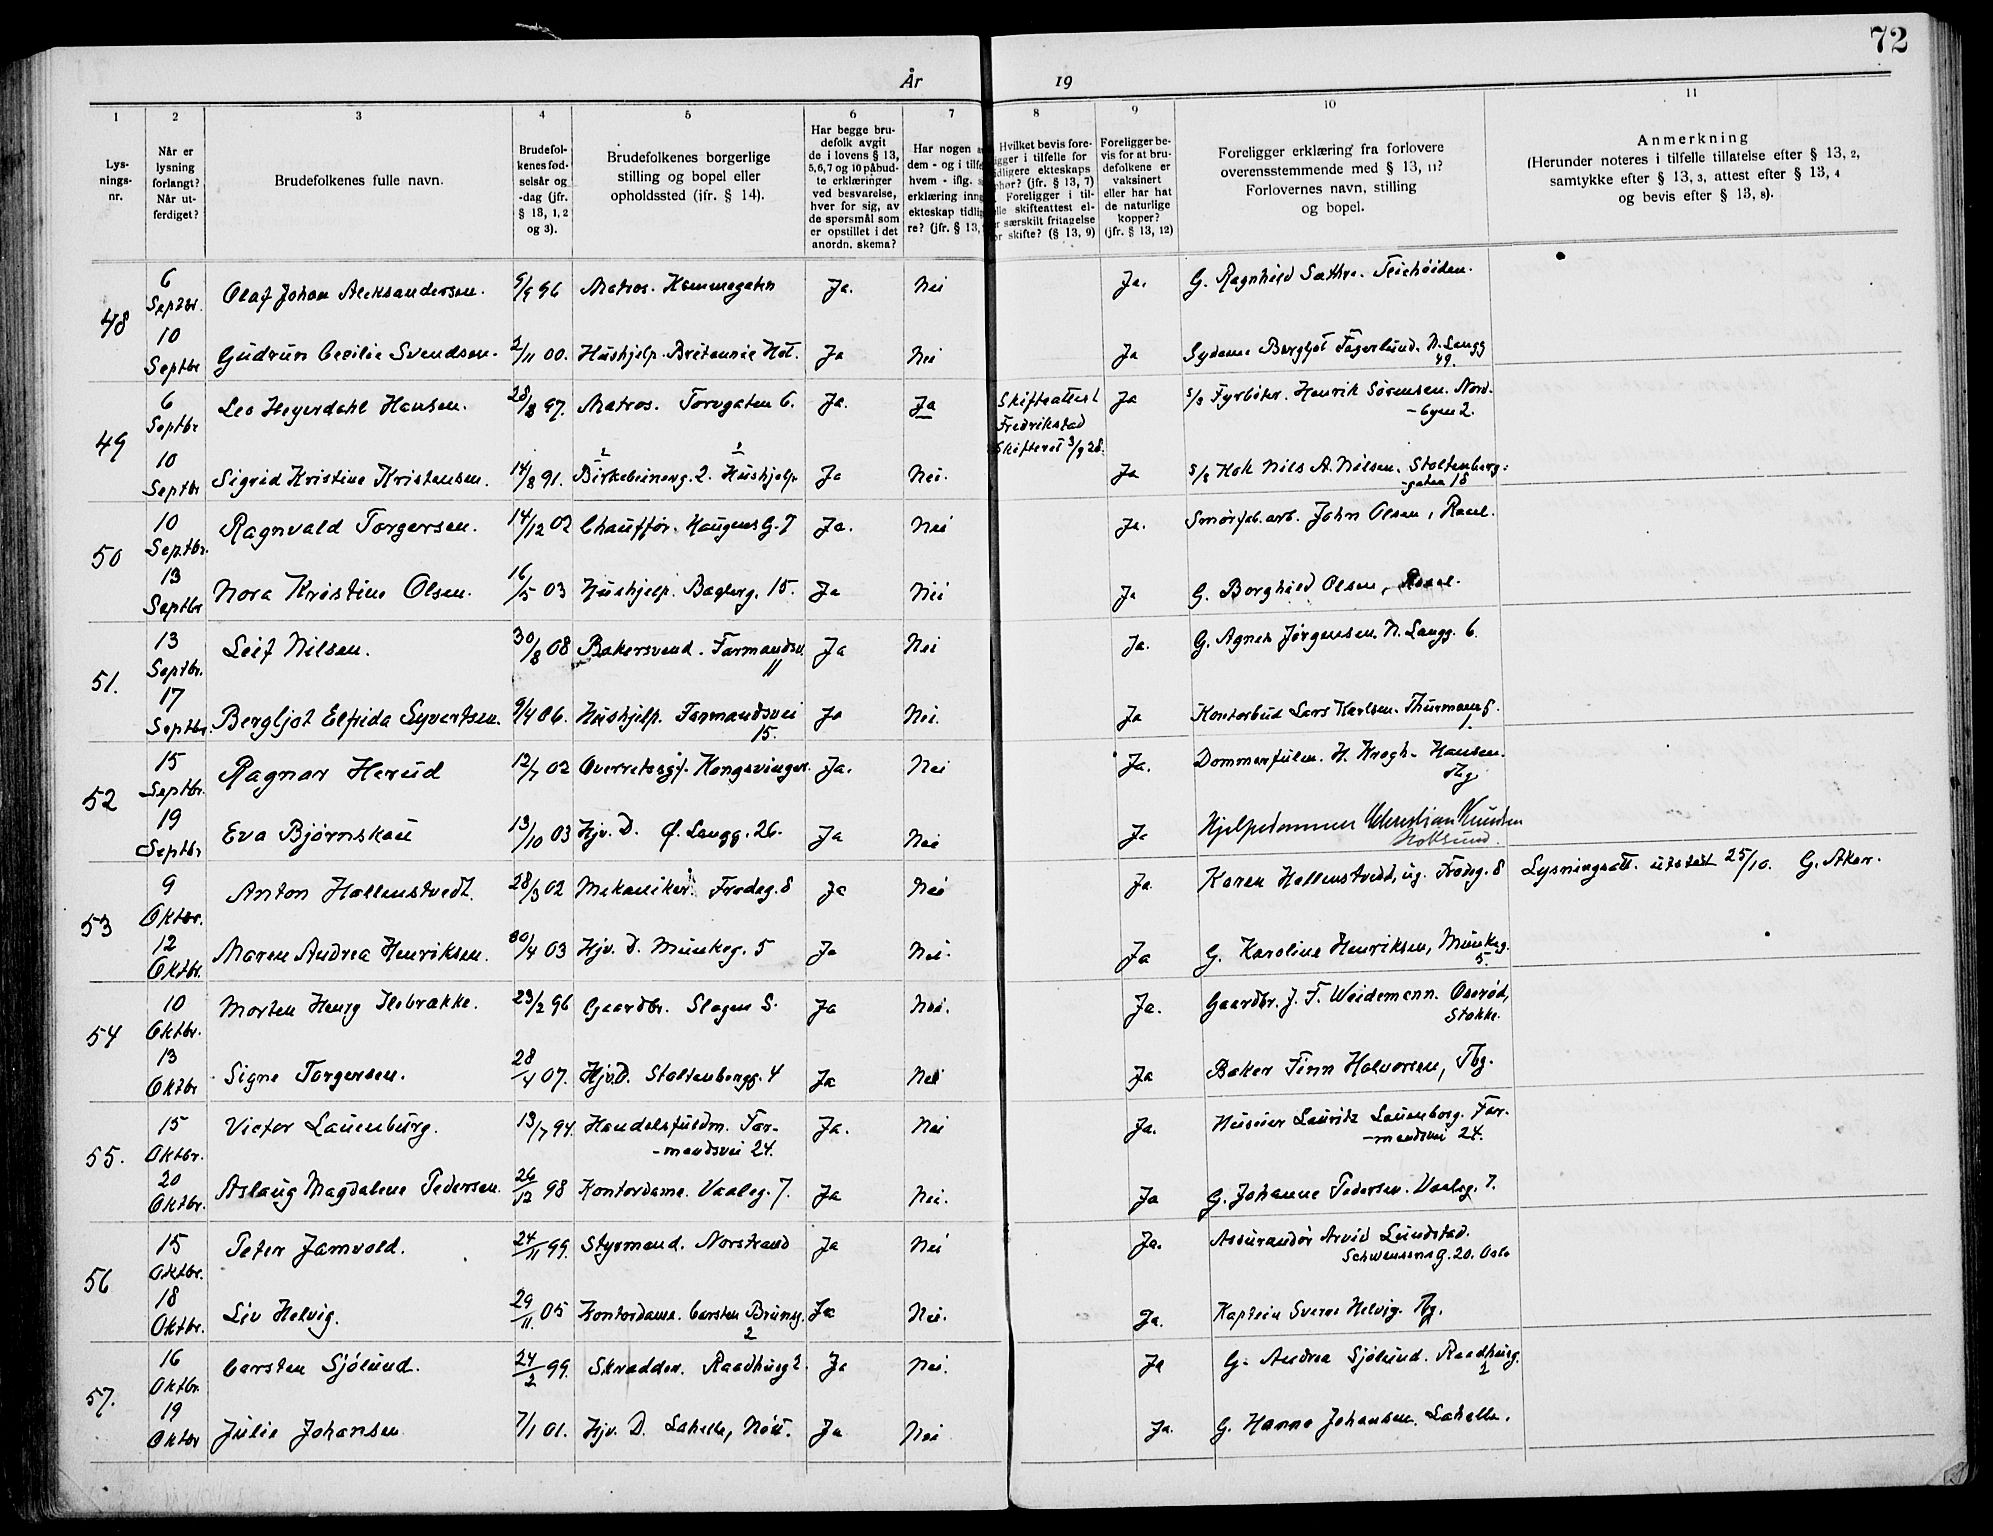 72
År 19
1 2 3 4 5 6 7 8 9 10 11
Lys-
nings-
nr.
Når er
lysning
forlangt?
Når ut-
ferdiget?
Brudefolkenes fulle navn.
Brudefol-
kenes fød-
selsår og
-dag (jfr.
§ 13, 1, 2
og 3).
Brudefolkenes borgerlige
stilling og bopel eller
opholdssted (jfr. § 14).
Har begge bru-
defolk avgit
de i lovens § 13,
5,6,7 og 10 påbud-
te erklæringer
ved besvarelse,
hver for sig, av
de spørsmål som
er opstillet i det
anordn. skema?
Har nogen
dem - og i tilf
hvem - iflg.
erklæring inn
ekteskap tidli
re? (jfr. § 13,
Hvilket bevis fore-
igger i tilfelle for
idligere ekteskaps
phør? (jfr. § 13, 7)
Foreligger i til-
lle skifteattest el-
r særskilt fritagelse
or skifte? (§ 13, 9)
Foreligger be-
vis for at bru-
defolkene er
vaksinert
eller har hat
de naturlige
kopper?
(jfr. § 13, 12)
Foreligger erklæring fra forlovere
overensstemmende med § 13, 11?
Forlovernes navn, stilling
og bopel.
Anmerkning
(Herunder noteres i tilfelle tillatelse efter § 13, 2,
samtykke efter § 13, 3, attest efter § 13, 4
og bevis efter § 13, 8).
48 6 Septbr. Olaf Johan Aleksandersen. 9/9 96 Matros. Hammegaten Ja. Nei Ja. G. Ragnhild Sæthre. Teiehøiden.
10 Septbr Gudrun Cecilie Svendsen. 2/11 00. Hushjelp. Britannia Hot. Ja Nei Ja Sydame Bergljot Fagerlund. N. Langg
49.
49 6 Septbr Leo Heyerdahl Hansen. 28/8 97. Matros. Torvgaten 6. Ja. Ja Skifteattest Ja s/s Fyrbøter. Henrik Sørensen. Nord-
Fredrikstad -byen 2.
Skifteret 3/9 28.
10 Septbr Sigrid Kristine Kristensen. 14/8 91. Birkebeinerg. 2. Hushjelp. Ja Nei. Ja s/s Kok Nils A. Nilsen. Stoltenberg-
-gaten 18
50 10 Septbr. Ragnvald Torgersen. 14/12 02 Chauffør. Haugens G. 7 Ja. Nei Ja. Smørfab. arb. John Olsen, Rael.
13 Septbr Nora Kristine Olsen. 16/5 03 Hushjelp. Baglerg. 15. Ja Nei Ja G. Borghild Olsen,
51. 13 Septbr. Leif Nilsen. 30/8 08 Bakersvend. Farmandsv. Ja Nei Ja. G. Agnes Jørgensen. N. Langg. 6.
11
17 Septbr. Bergljot Elfrida Syvertsen. 9/4 06. Hushjelp. Farmandsvei Ja Nei. Ja Kontorbud Lars Karlsen. Thurmansg.
15. 1.
52 15 Septbr. Ragnar Herud 12/7 02 Overretssagf. Kongsvinger. Ja. Nei Ja. Dommerfulm. H. Krogh-Hansen.
Tbg
19 Septbr Eva Bjørnskau 13/10 03 Hjv. D. Ø. Langg. 26. Ja Nei Ja Hjelpedommer Christian Knudsen
Hokksund.
53 9 Oktbr. Anton Hallenstvedt. 28/3 02 Mekaniker. Frodeg. 8 Ja Nei Ja Karen Hallenstvedt, ug. Frodeg. 8 Lysningsatt. utstedt 25/10. G. Aker.
12 Oktbr. Maren Andrea Henriksen. 30/4 03 Hjv. D. Munkeg. 5 Ja Nei. Ja G. Karoline Henriksen, Munkeg.
5.
54 10 Oktbr. Morten Henry Ilebrække. 23/2 96 Gaardbr. Slagen S. Ja Nei. Ja. Gaardbr. J. F. Weidemann. Oserød,
Stokke.
13 Oktbr Signe Torgersen. 28/4 07. Hjv.D. Stoltenbergg. 4 Ja Nei Ja Baker Finn Halvorsen, Tbg.
55. 15 Oktbr. Victor Lauenburg. 13/7 94. Handelsfuldm. Far- Ja. Nei Ja. Huseier Lauritz Lauenborg. Far-
-mandsvei 24. -mandsvei 24.
20 Oktbr. Aslaug Magdalene Pedersen. 26/12 98 Kontordame. Vaaleg. 7. Ja Nei. Ja G. Johanne Pedersen. Vaaleg. 7.
56 15 Oktbr. Peter Jamvold. 24/11 99. Styrmand. Norstrand Ja Nei Ja. Assurandør Arvid Lundstad.
Schwensens G. 20. Oslo
18 Oktbr. Liv Helvig. 29/11. 05 Kontordame. Carsten Brunsg. Ja Nei. Ja. Kaptein Sverre Helvig. Tbg.
2
57. 16 Oktbr. Carsten Sjölund. 24/2 99. Skrædder. Raadhusg 2. Ja Nei. Ja G. Andrea Sjölund. Raadhusg.
2
19 Oktbr Julie Johansen 7/1 01. Hjv. D. Lahelle, Nøtt. Ja Nei Ja. G. Hanna Johansen. Lahelle.